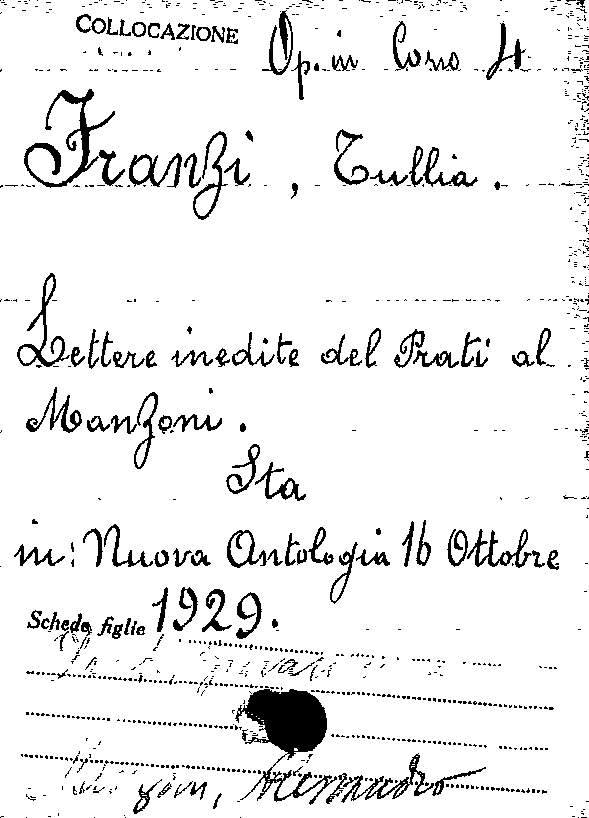 COLLOCAZIONE Op. in Corso 4
Franzi, Tullia.
Lettere inedite del Prati al
Manzoni.
Sta
in: Nuova Antologia 16 Ottobre
1929.
Schede figlie
Manzoni, Alessandro